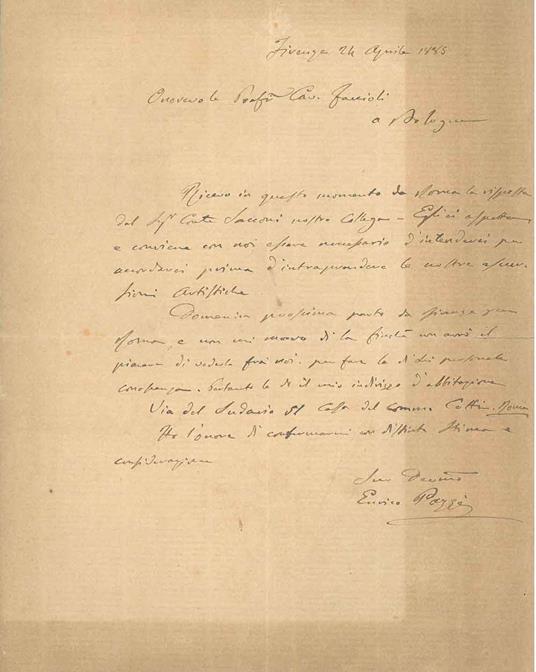 Firenze 24 Aprile 1885
Onorevole Profr. Cav. Faccioli
a Bologna
Ricevo in questo momento da Roma la risposta
dal Sigr Conte Sacconi nostro Collega – Egli ci aspetta
e conviene con noi essere necessario d'intenderci per
accordarci prima d'intraprendere le nostre escur-
sioni Artistiche
Domenica prossima parto da Firenze per
Roma, e non mi muovo di la finchè non avrò il
piacere di vederla fra noi. per fare la di Lei personale
conoscenza. Pertanto le do il mio indirizzo d'abbitazione
Via del Sudario 51 Casa del Roma
Ho l'onore di confermarmi con distinta Stima e
considerazione
Suo Devmo
Enrico Pazzi